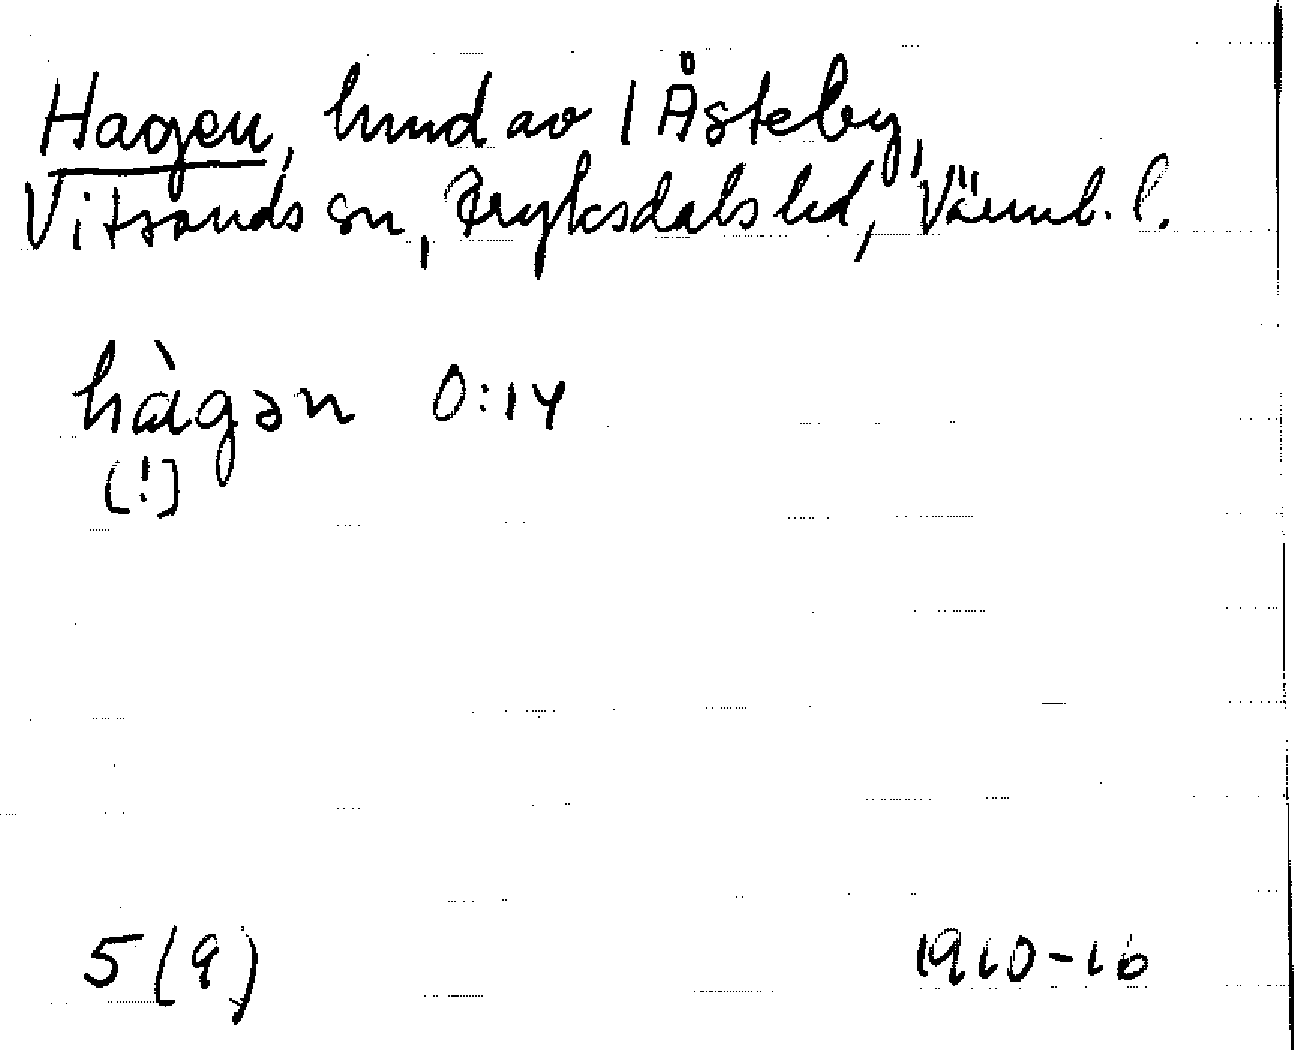 Hagen, hmd av 1 Åsteby,
Vitsands sn, Fryksdals hd, Värml. l.
hàgən 0:14
[!]
5(9)
1910-16